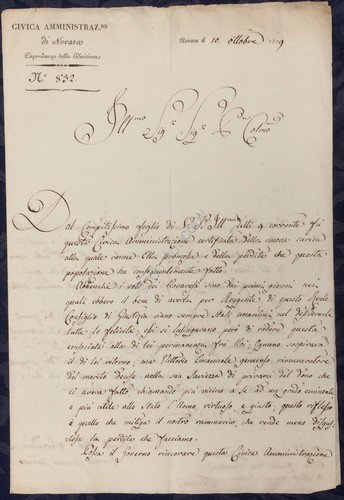 CIVICA AMMINISTRAZ.NE
di Novara
Capo-luogo della Divisione
N.° 832.
Novara li 10. Ottobre 1819
Ill.mo Sig.r Sig.r P.ron Colmo
Dal Compitissimo foglio di V.S. Ill.ma delli 4 corrente fu
questa Civica Amministrazione certificata della nuova carica
alla quale venne Ella promossa e della perdita che questa
popolazione ha conseguentemente fatto.
Abbenchè i voti dei Novaresi sino dai primi giorni nei
quali ebbero il bene di averla per Reggente di questo Reale
Consiglio di Giustizia siano sempre stati unanimi nel desiderarle
tutte le felicità, essi si lusingavano però di vedere questa
consociate alla di lei permanenza fra Noi. Ognuno sospirava
il di lei ritorno, ma Vittorio Emanuele generoso rimuneratore
del merito decise nella sua Saviezza di privarci del dono che
ci aveva fatto chiamando più vicino a Se ad un grado eminente
e più utile allo Stato l'Uomo virtuoso e giusto, questo riflesso
è quello che mitiga il nostro rammarico, che rende meno
la perdita che facciamo.
Colà il Governo rincorare questa Civica Amministrazione